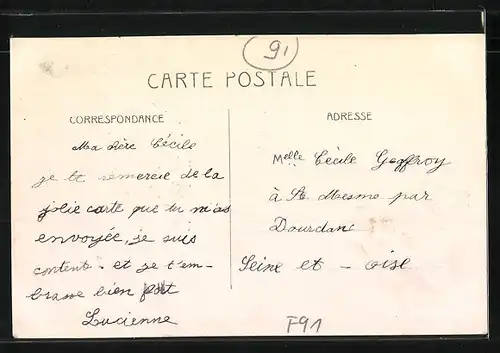 91
CARTE POSTALE
CORRESPONDANCE
Ma chère Cécile
je te remercie de la
jolie carte que tu m'as
envoyée, je suis
contente et je t'em-
brasse bien fort
Lucienne
ADRESSE
Melle Cécile Geoffroy
à St. Mesme par
Dourdan
Seine et - oise
F91